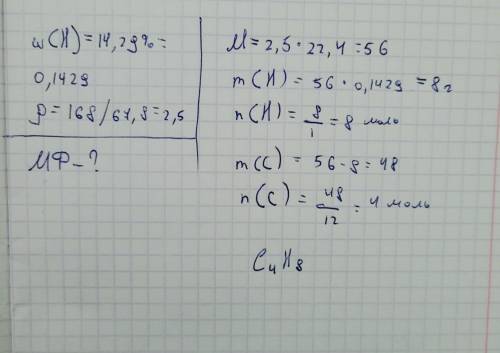 ω(H) = 14,29% =
0,1429
ρ = 168/67,8 = 2,5
МФ - ?
M = 2,5 · 22,4 = 56
m(H) = 56 · 0,1429 = 8г
n(H) = 8/1 = 8 моль
m(C) = 56 - 8 = 48
n(C) = 48/12 = 4 моль
C₄H₈